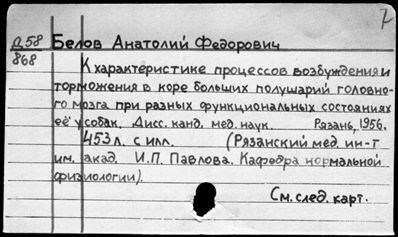 7
Д58 Белов Анатолий Федорович
868 К характеристике процессов возбуждения и
торможения в коре больших полушарий головно-
го мозга при разных функциональных состояниях
её у собак. Дисс. канд. мед. наук. Рязань, 1956.
453 л. с илл. (Рязанский мед. ин-т
им. акад. И.П. Павлова. Кафедра нормальной
физиологии).
См. след. карт.